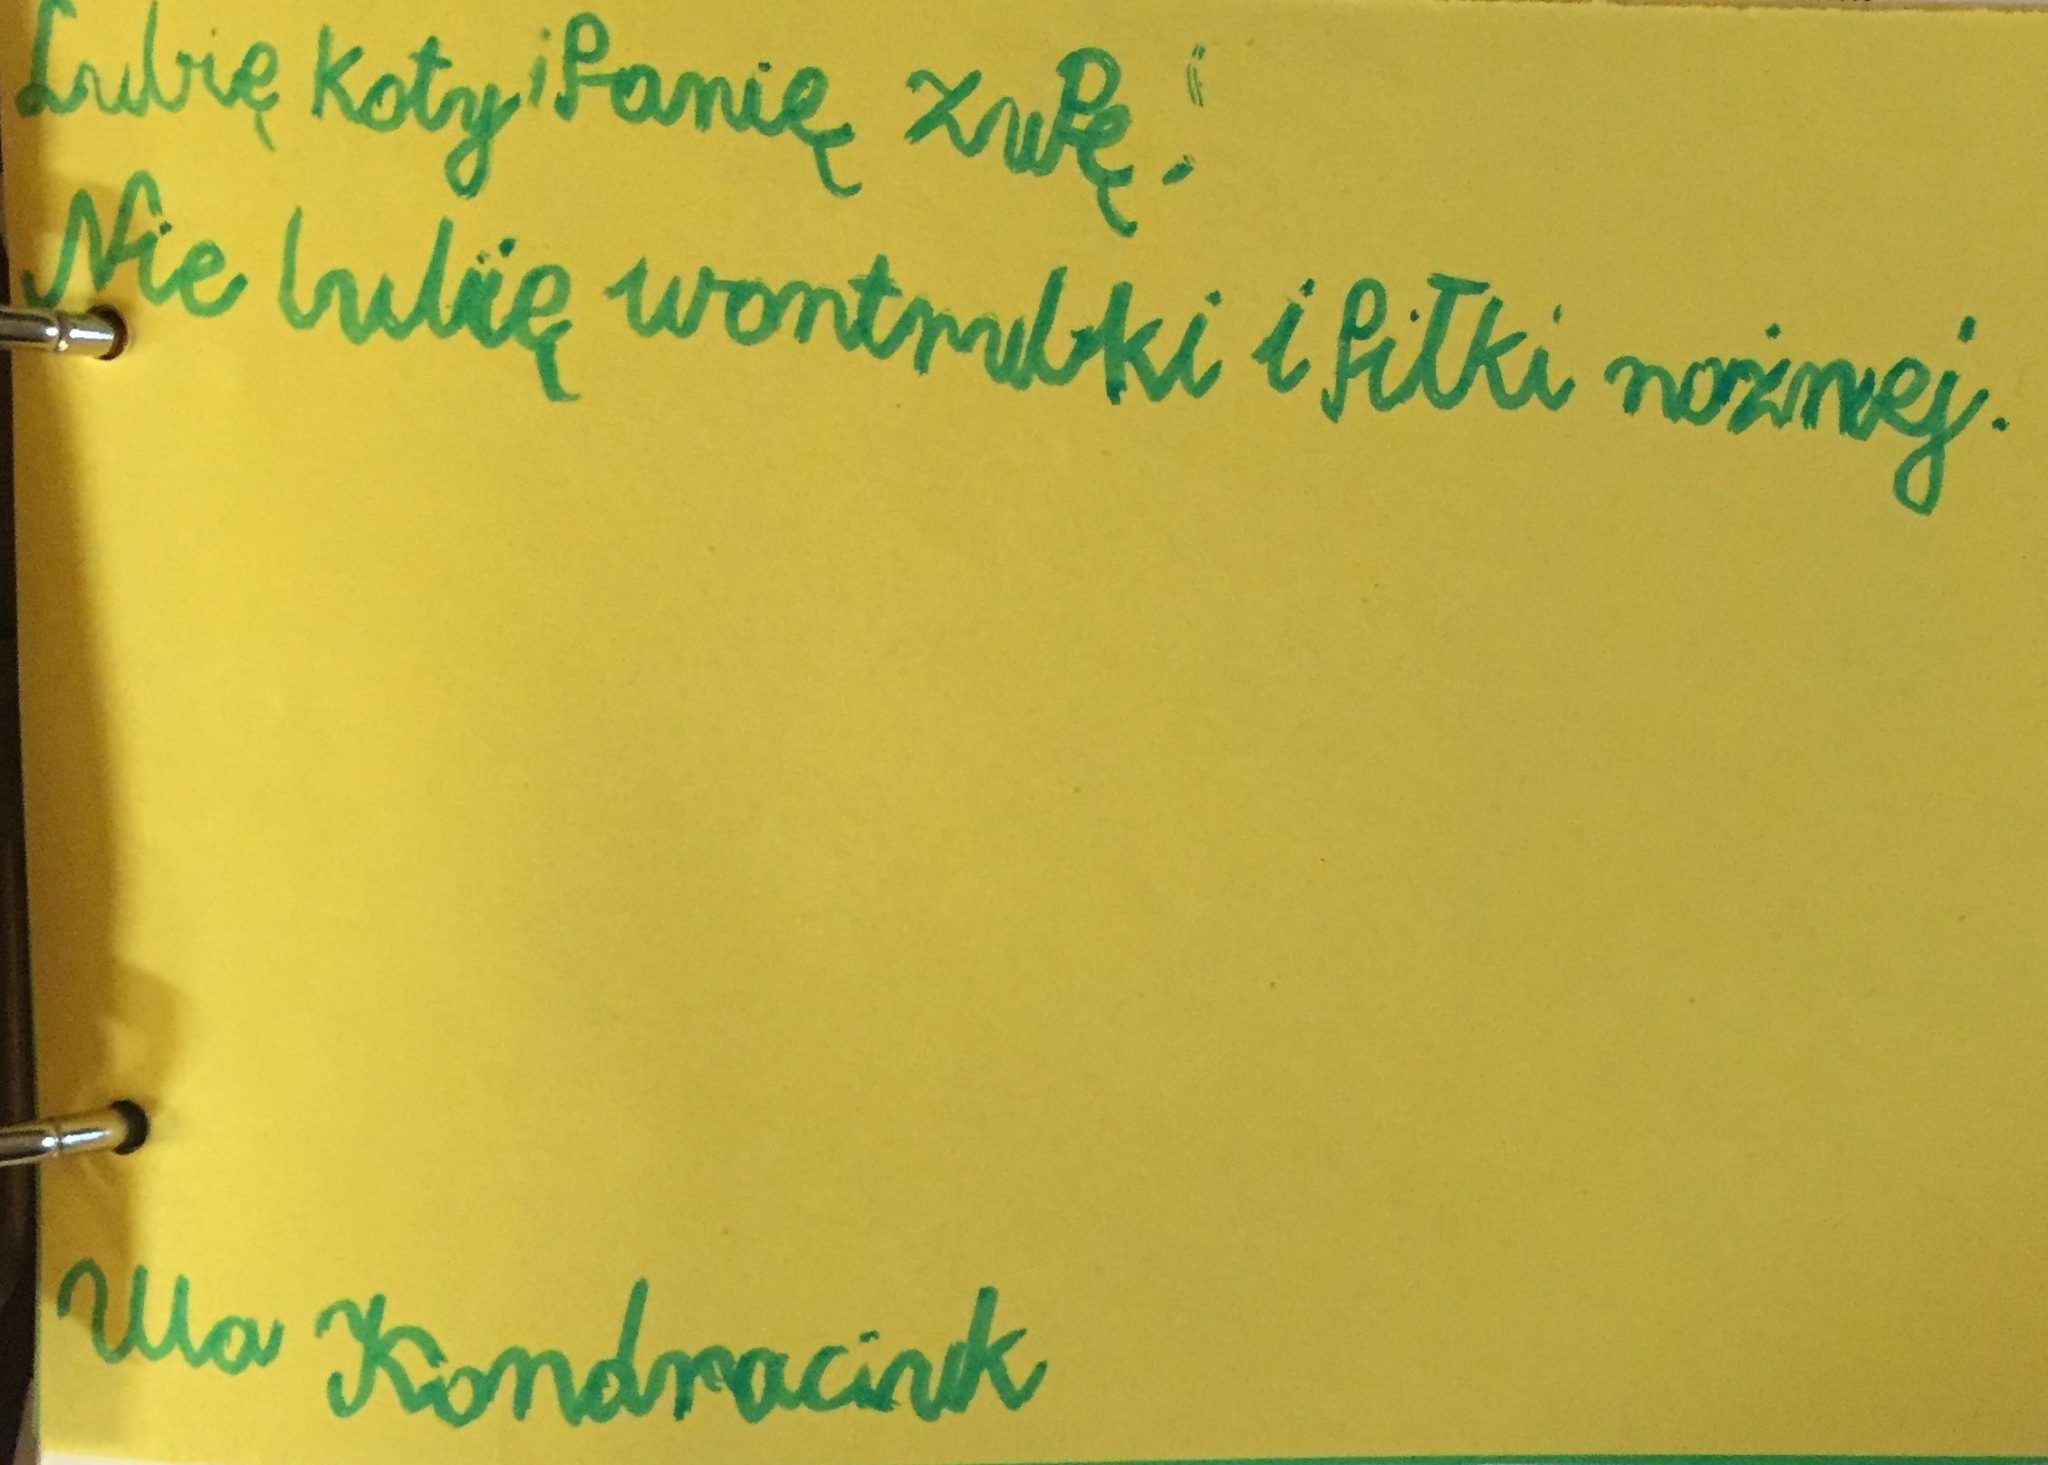 Lubię koty i Panią zupę!
Nie lubię wontrubki i piłki nożnej.
Ula Kondraciuk